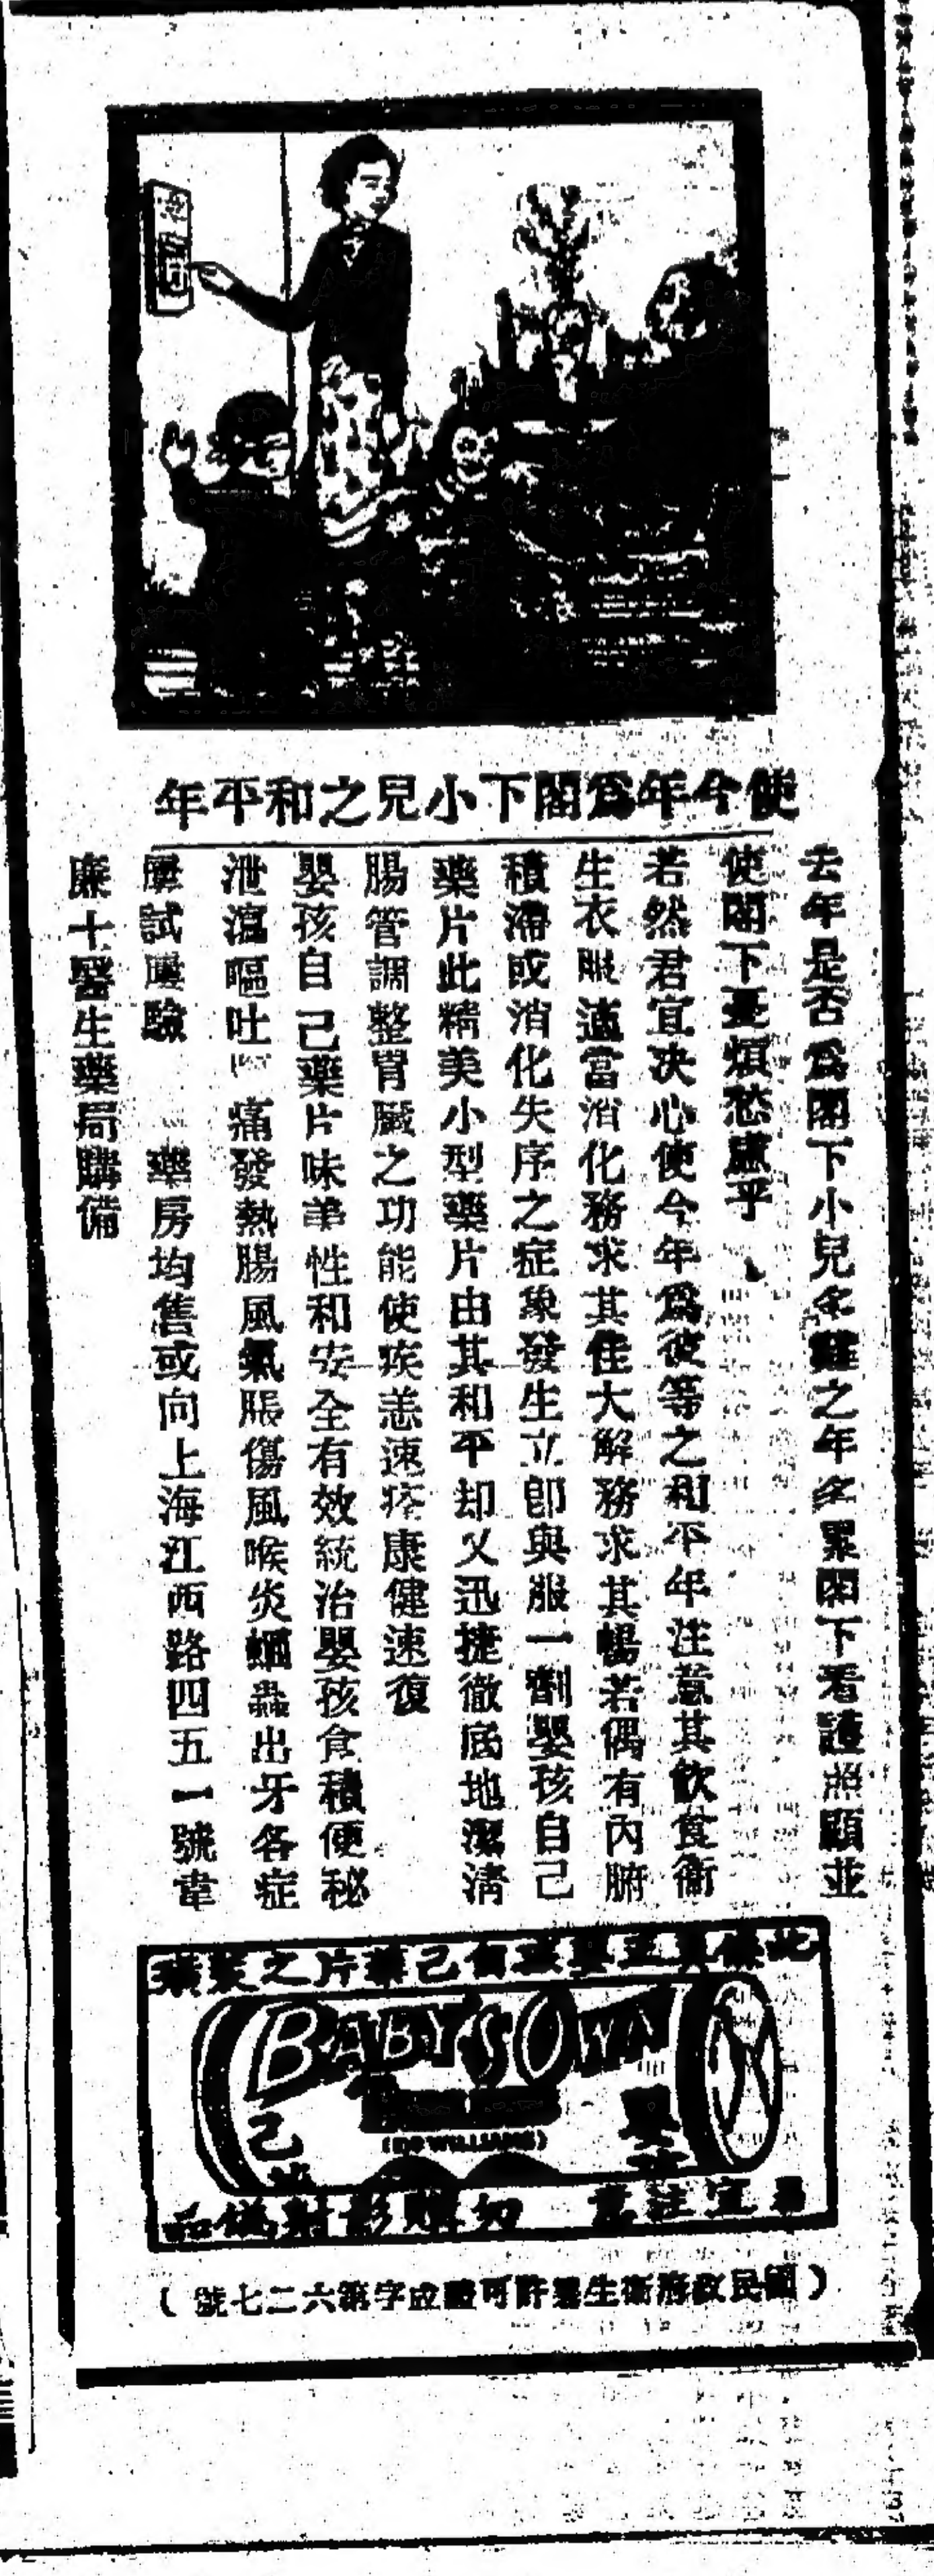 使今年爲閣下小兒之和平年
去年是否爲閣下小兒多難之年多累閣下看護照顧並
使閣下憂煩愁慮乎
若然君宜决心使今年爲彼等之和平年注意其飲食衞
生衣服適當消化務求其佳大解務求其暢若偶有內腑
積滯或消化失序之症象發生立卽與服一劑嬰孩自己
藥片此精美小型藥片由其和平却又迅捷徹底地潔淸
腸管調整胃臟之功能使疾恙速痊康健速復
嬰孩自己藥片味美性和安全有效統治嬰孩食積便秘
泄瀉嘔吐 痛發熱腸風氣脹傷風喉炎蛔蟲出牙各症
屢試屢驗 藥房均售或向上海江西路四五一號韋
廉士醫生藥局購備
此係眞正嬰孩自己藥片之裝璜
BABY'S OWN
(DR WILLIAMS)
嬰
己
宜注意 勿購影射僞
(國民政府衞生署許可證成字第六二七號)